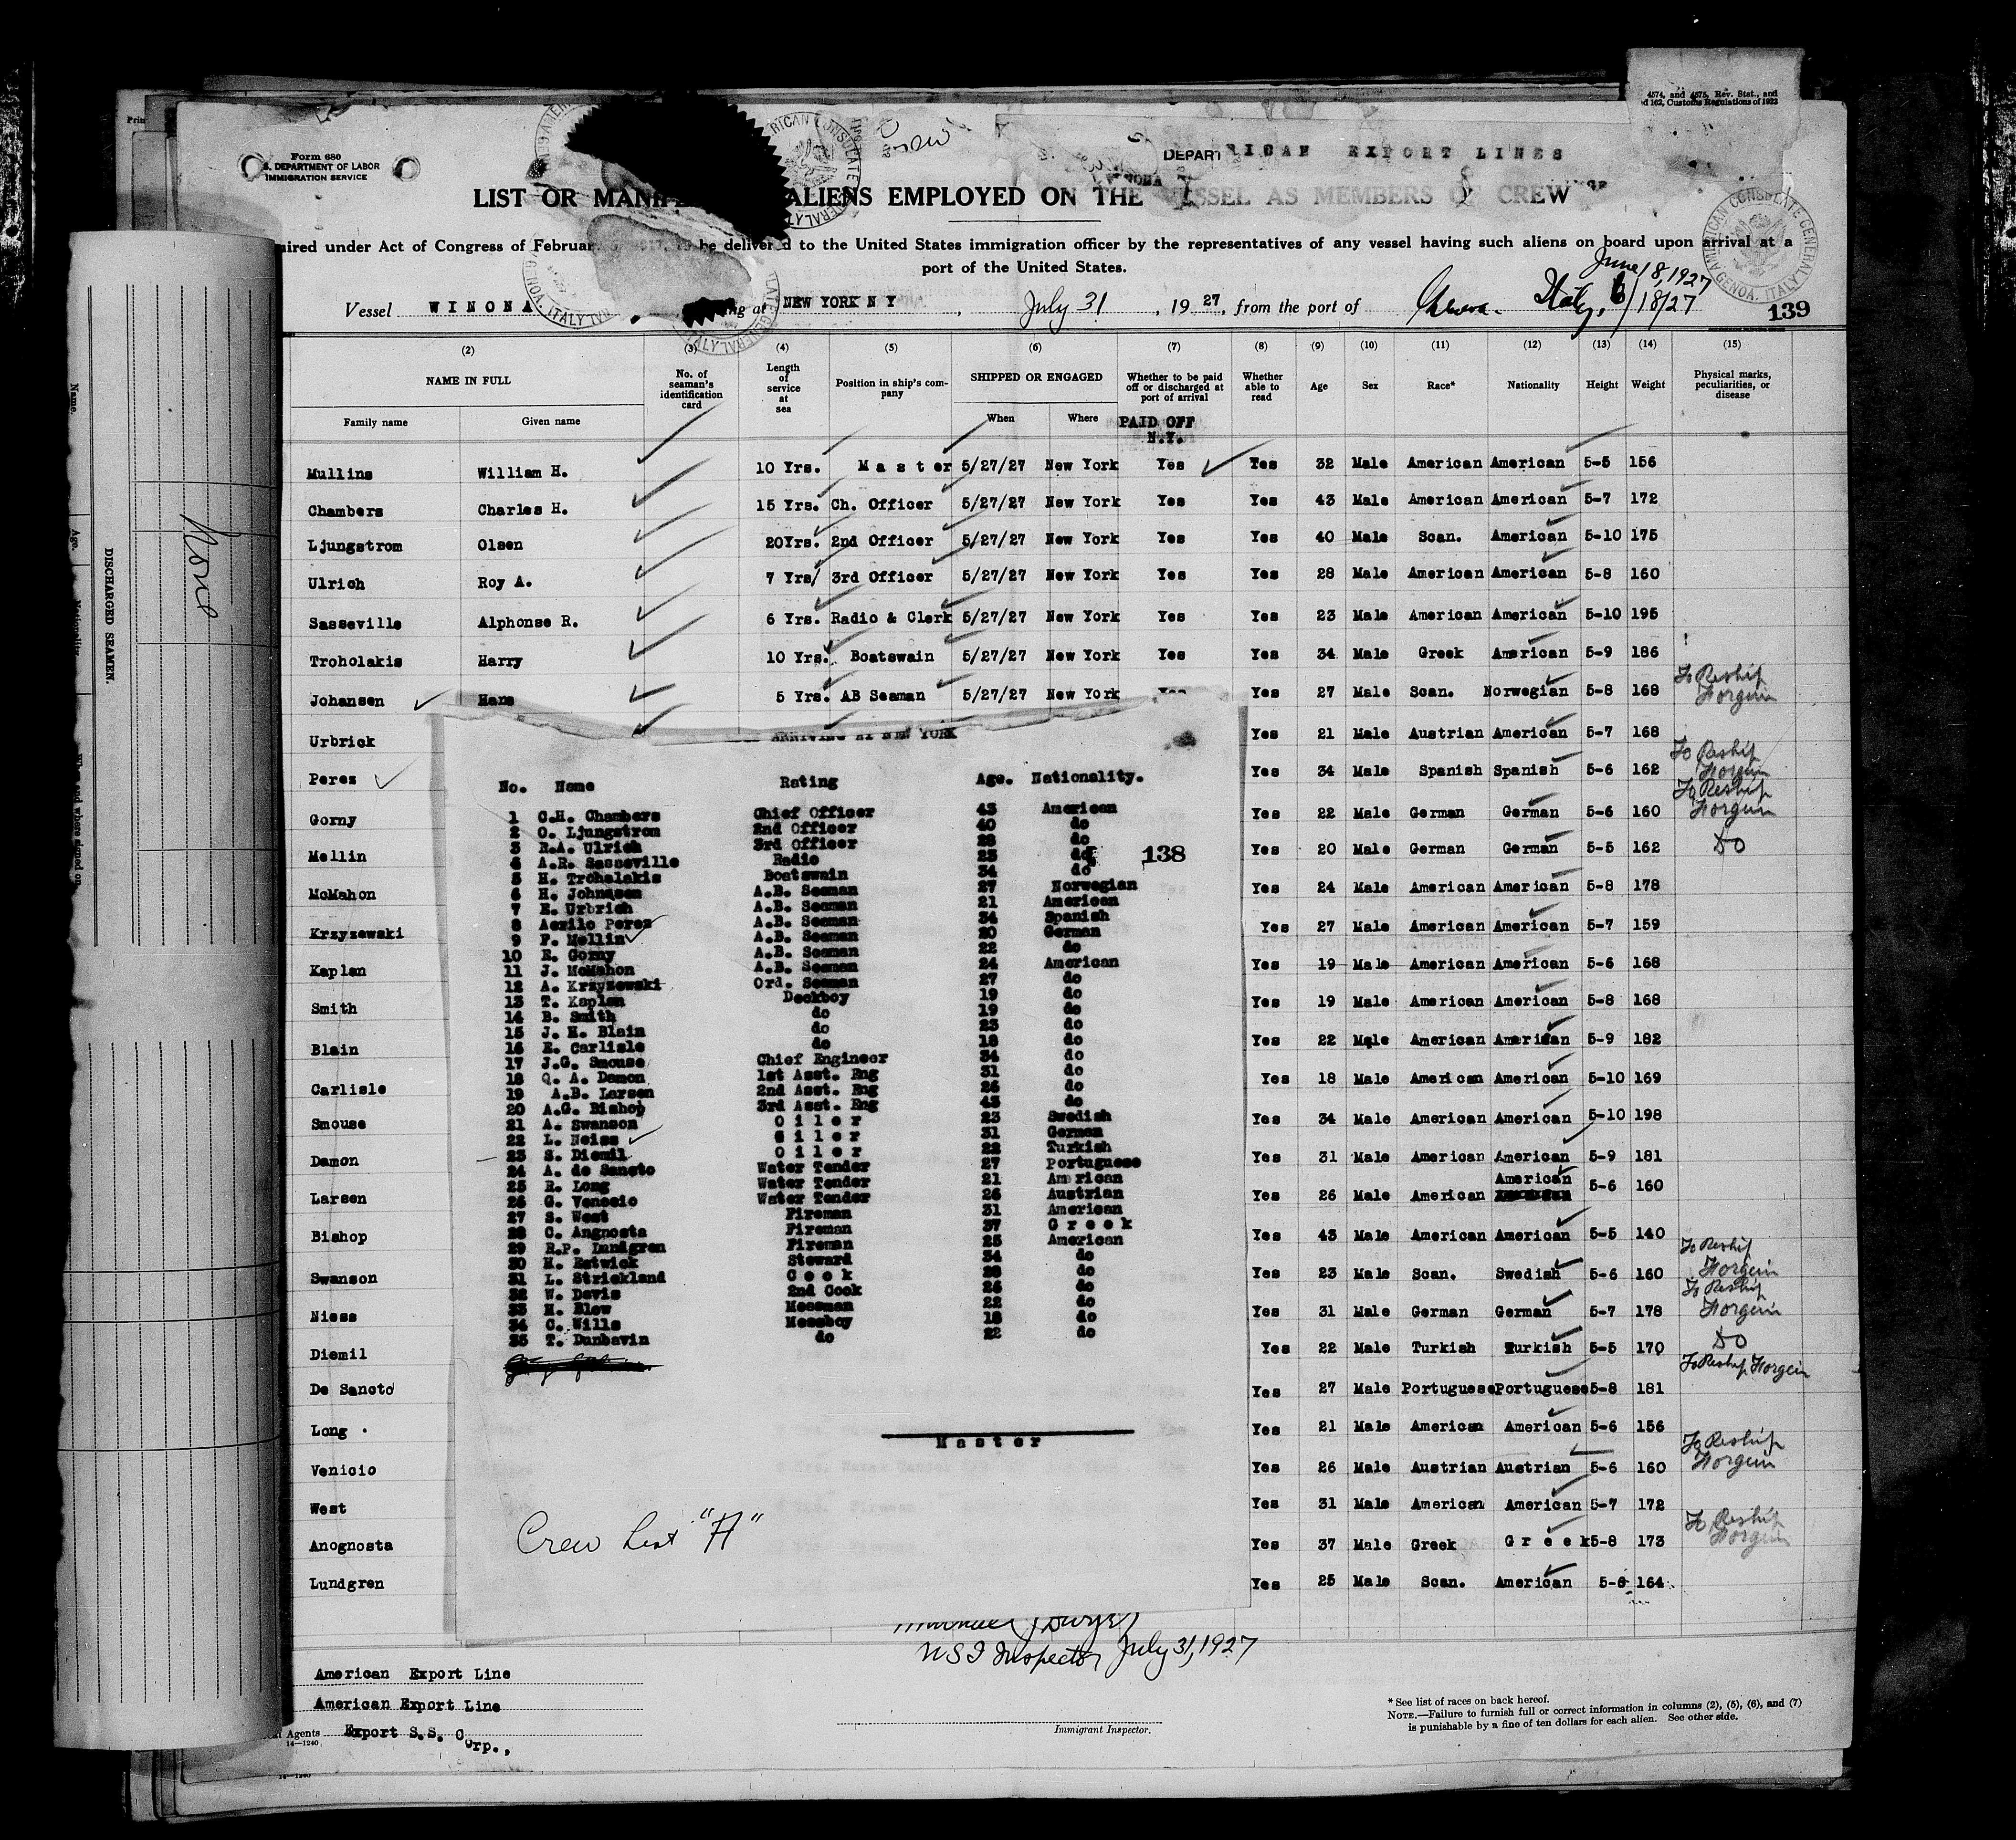 4574, and 4575, Rev. Stat., and
162, Customs Regulations of 1923
Form 680
S. DEPARTMENT OF LABOR
IMMIGRATION SERVICE
DEPART RICAN EXPORT LINES
LIST OR MANIF ALIENS EMPLOYED ON THE VESSEL AS MEMBERS OF CREW
uired under Act of Congress of Februar be delivered to the United States immigration officer by the representatives of any vessel having such aliens on board upon arrival at a
port of the United States.
AMERICAN CONSULATE GENERAL GENOA, ITALY
June 18, 1927
Vessel WINONA ng at NEW YORK N Y, July 31, 1927, from the port of Genoa. Italy, 6/18/27
139
(2) (3) (4) (5) (6) (7) (8) (9) (10) (11) (12) (13) (14) (15)
NAME IN FULL No. of seaman's identification card Length of service at sea Position in ship's company SHIPPED OR ENGAGED Whether to be paid off or discharged at port of arrival Whether able to read Age Sex Race* Nationality Height Weight Physical marks, peculiarities, or disease
Family name Given name When Where PAID OFF N.Y.
Mullins William H. 10 Yrs. Master 5/27/27 New York Yes Yes 32 Male American American 5-5 156
Chambers Charles H. 15 Yrs. Ch. Officer 5/27/27 New York Yes Yes 43 Male American American 5-7 172
Ljungstrom Olsen 20Yrs. 2nd Officer 5/27/27 New York Yes Yes 40 Male Scan. American 5-10 175
Ulrich Roy A. 7 Yrs/ 3rd Officer 5/27/27 New York Yes Yes 28 Male American American 5-8 160
Sasseville Alphonse R. 6 Yrs. Radio & Clerk 5/27/27 New York Yes Yes 23 Male American American 5-10 195
Troholakis Harry 10 Yrs. Boatswain 5/27/27 New York Yes Yes 34 Male Greek American 5-9 186
Johansen Hans 5 Yrs. AB Seaman 5/27/27 New York Yes Yes 27 Male Scan. Norwegian 5-8 168 To Reship Foreign
Urbrick Yes 21 Male Austrian American 5-7 168
Perez Yes 34 Male Spanish Spanish 5-6 162 To Reship Foreign
Gorny Yes 22 Male German German 5-6 160 To Reship Foreign
Mellin Yes 20 Male German German 5-5 162 Do
McMahon Yes 24 Male American American 5-8 178
Krzyzewski Yes 27 Male American American 5-7 159
Kaplan Yes 19 Male American American 5-6 168
Smith Yes 19 Male American American 5-8 168
Blain Yes 22 Male American American 5-9 182
Carlisle Yes 18 Male American American 5-10 169
Smouse Yes 34 Male American American 5-10 198
Damon Yes 31 Male American American 5-9 181
Larsen Yes 26 Male American American 5-6 160
Bishop Yes 43 Male American American 5-5 140
Swanson Yes 23 Male Scan. Swedish 5-6 160 To Reship Foreign
Niess Yes 31 Male German German 5-7 178 To Reship Foreign
Diemil Yes 22 Male Turkish Turkish 5-5 170 Do
De Sancto Yes 27 Male Portuguese Portuguese 5-8 181 To Reship Foreign
Long Yes 21 Male American American 5-6 156
Venicio Yes 26 Male Austrian Austrian 5-6 160 To Reship Foreign
West Yes 31 Male American American 5-7 172
Anognosta Yes 37 Male Greek Greek 5-8 173 To Reship Foreign
Lundgren Yes 25 Male Scan. American 5-6 164
ARRIVING AT NEW YORK
No. Name Rating Age. Nationality.
1 C.H. Chambers Chief Officer 43 American
2 O. Ljungstrom 2nd Officer 40 do
3 R.A. Ulrich 3rd Officer 28 do
4 A.R. Sasseville Radio 23 do
5 H. Trohalakis Boatswain 34 do
6 H. Johnasen A.B. Seaman 27 Norwegian
7 E. Urbrich A.B. Seaman 21 American
8 Aczilo Perez A.B. Seaman 34 Spanish
9 F. Mellin A.B. Seaman 20 German
10 R. Gorny A.B. Seaman 22 do
11 J. McMahon A.B. Seaman 24 American
12 A. Krzyzewski Ord. Seaman 27 do
13 T. Kaplan Deckboy 19 do
14 B. Smith do 19 do
15 J. H. Blain do 23 do
16 E. Carlisle do 18 do
17 J.G. Smouse Chief Engineer 34 do
18 Q. A. Damon 1st Asst. Eng 31 do
19 A.B. Larsen 2nd Asst. Eng 26 do
20 A.G. Bishop 3rd Asst. Eng 43 do
21 A. Swanson Oiler 23 Swedish
22 L. Neiss Oiler 31 German
23 S. Diemil Oiler 22 Turkish
24 A. de Sancto Water Tender 27 Portuguese
25 R. Long Water Tender 21 American
26 G. Venecio Water Tender 26 Austrian
27 S. West Fireman 31 American
28 C. Angnosta Fireman 37 Greek
29 R.P. Lundgren Fireman 25 American
30 H. Estwick Steward 34 do
31 L. Strickland Cook 28 do
32 W. Davis 2nd Cook 26 do
33 H. Blew Messman 22 do
34 C. Wills Messboy 18 do
35 T. Dunbavin do 22 do
138
Master
Crew List "A"
USI Inspector July 31, 1927
American Export Line
American Export Line
Agents Export S.S. Corp.,
14—1240
Immigrant Inspector.
* See list of races on back hereof.
NOTE.—Failure to furnish full or correct information in columns (2), (5), (6), and (7)
is punishable by a fine of ten dollars for each alien. See other side.
Name.
Age.
DISCHARGED SEAMEN.
None